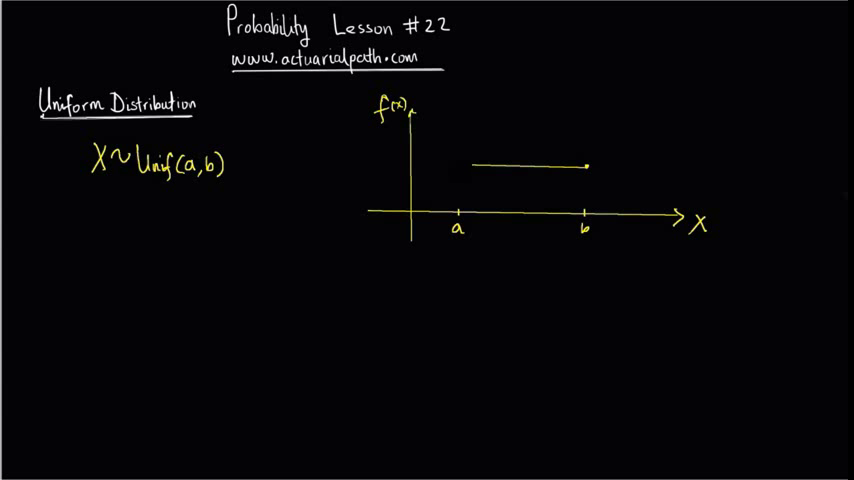 Probability Lesson #22
www.actuarialpath.com
Uniform Distribution
f(x)
X~Unif(a,b)
a b X